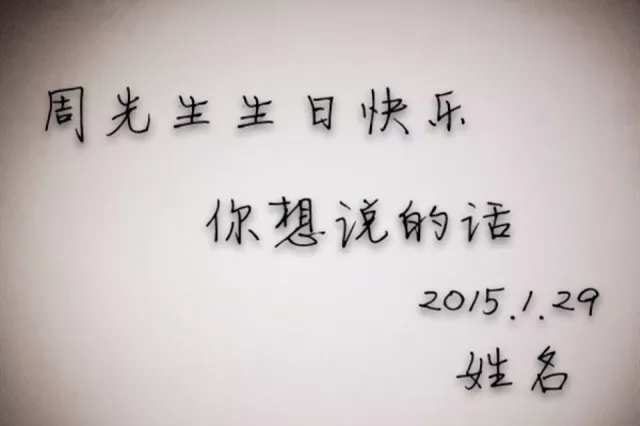 周先生生日快乐
你想说的话
2015.1.29
姓名